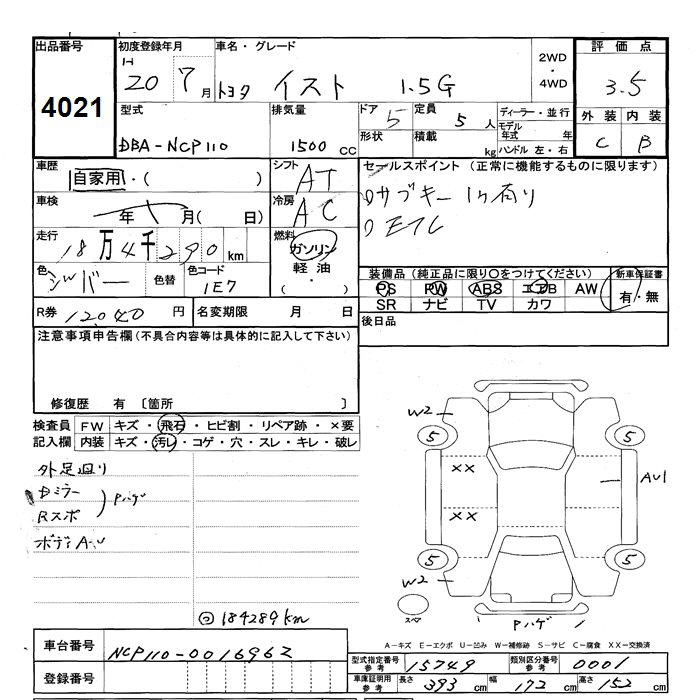 出品番号 初度登録年月 車名・グレード 2WD ・ 4WD 評価点
4021
H 20 7月 トヨタ イスト 1.5G 3.5
型式 排気量 ドア 5 定員 5人 ディーラー・並行 外装 内装
DBA-NCP110 1500 CC 形状 積載 kg モデル年式 年 ハンドル 左・右 C B
車歴 シフト AT セールスポイント (正常に機能するものに限ります)
自家用・( ) 冷房 AC サブキー1ヶ有り
車検 年 月(日) ETC
走行 18万4千290km 燃料 ガソリン
軽油
( ・ )
色 シルバー 色替 色コード 1E7
装備品 (純正品に限り○をつけてください) 新車保証書
PS PW ABS エアB AW 有・無
SR ナビ TV カワ
R券 12040 円 名変期限 月 日 後日品
注意事項申告欄(不具合内容等は具体的に記入して下さい)
修復歴 有 〔箇所 〕
検査員 FW キズ・飛石・ヒビ割・リペア跡・×要
記入欄 内装 キズ・汚レ・コゲ・穴・スレ・キレ・破レ
外足廻り
Dミラー
Rスポ Pハゲ
ボディA・U
184289km
W2
5 5
XX AU1
XX
5 5
W2
スペア Pハゲ
A-キズ E-エクボ U-凹み W-補修跡 S-サビ C-腐食 XX-交換済
車台番号 NCP110-0016962
登録番号
型式指定番号 参考 15749 類別区分番号 参考 0001
車庫証明用 参考 長さ 393 cm 幅 172 cm 高さ 152 cm